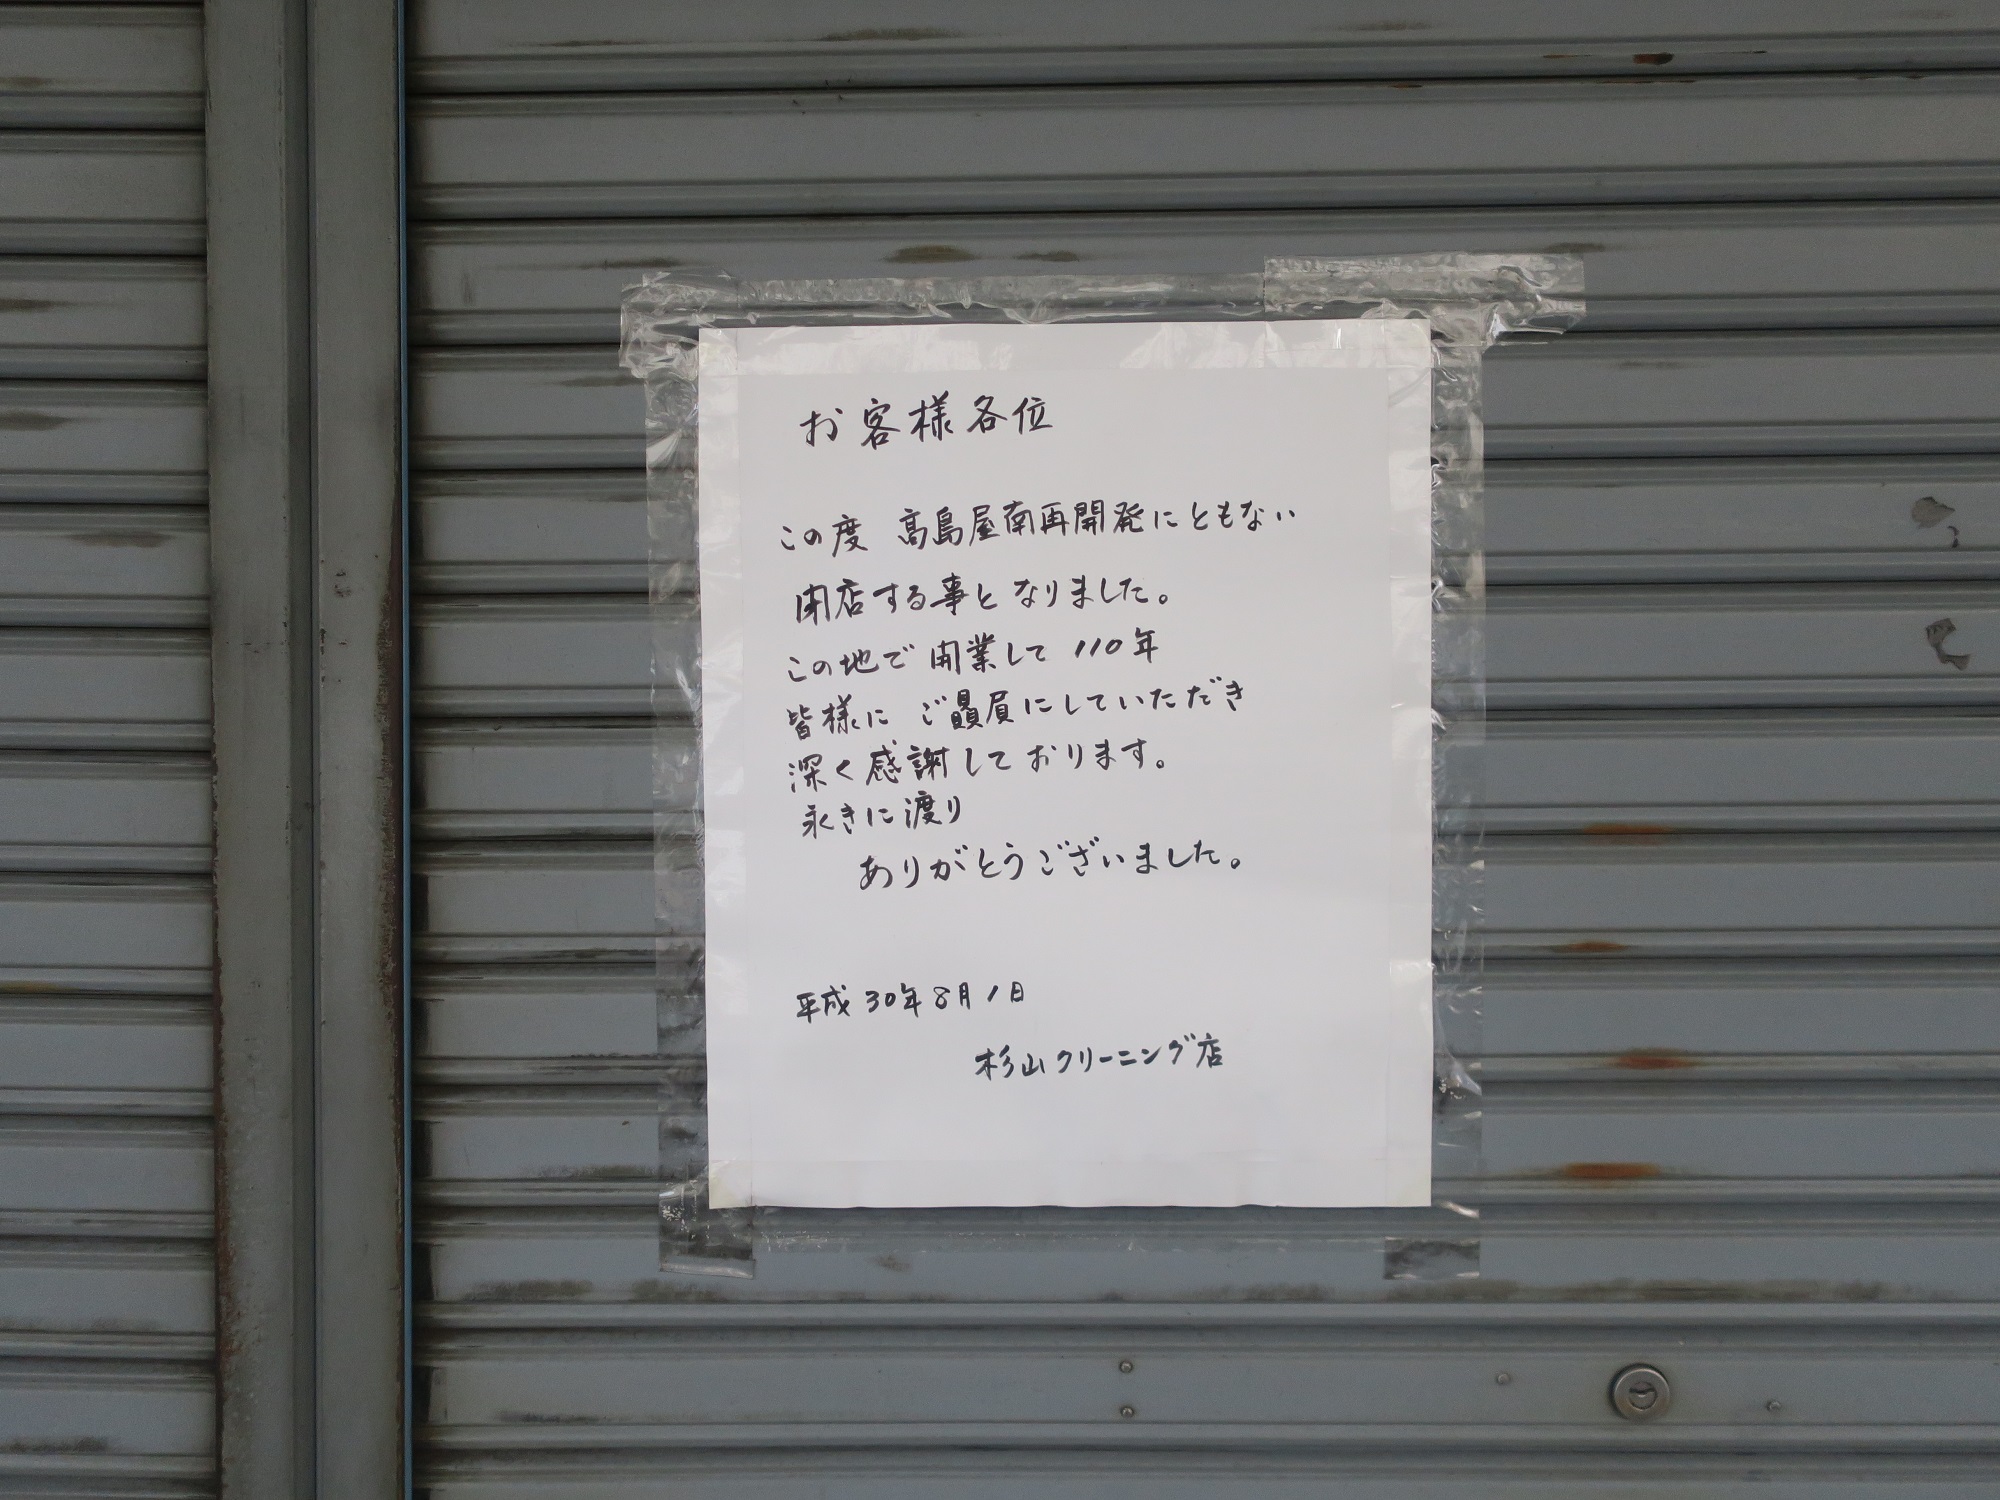 お客様各位
この度 高島屋南再開発にともない
閉店する事となりました。
この地で開業して 110年
皆様に ご贔屓にしていただき
深く感謝しております。
永きに渡り
ありがとうございました。
平成30年8月1日
杉山クリーニング店